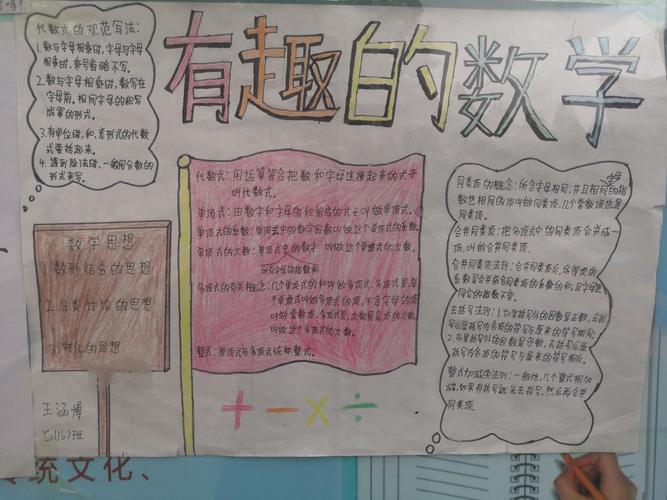 有趣的数学
代数式的规范写法:
1.数与字母相乘时,字母与字母
相乘时,乘号省略不写。
2.数与字母相乘时,数写在
字母前。相同字母的积写
成幂的形式。
3.有单位础,和、差形式的代数
式要括起来。
4.遇到除法础,一般用分数的
形式来写。
数学思想
1.数形结合的思想
2.分类讨论的思想
3.转化的思想
王涵博
七(16)班
代数式:用运算符合把数和字母连接起来的式子
叫代数式。
单项式:由数字和字母的积组成的式子叫做单项式。
单项式的系数:单项式中的数字因数叫做这个单项式的系数。
单项式的次数:单项式中的数字 叫做这个单项式的次数。
所有字母的指数和
多项式的有关概念:几个单项式的和叫做多项式,多项式里,每
个单项式叫做多项式的项,不含字母的项
叫做常数项。多项式里,次数最高项的次数,
叫做这个多项式的次数。
整式:单项式与多项式统称整式。
+ − × ÷
字母
同类项的概念:所含字母相同,并且相同的指
数也相同的项叫做同类项,几个常数项也是
同类项。
合并同类项:把多项式中的同类项合并成一
项,叫做合并同类项。
合并同类项法则:合并同类项后,所得项的
系数是合并前各同类项的系数的和,且字母连
同它的指数不变。
去括号法则:1.如果括号外的因数是正数,去括
号后原括号内各项的符号与原来的符号相同;
2.如果括号外的因数是负数,去括号后原
括号内各项的符号与原来的符号相反。
整式加减法则:一般地,几个整式相加
减,如果有括号就先去括号,然后再合并
同类项
统文化、